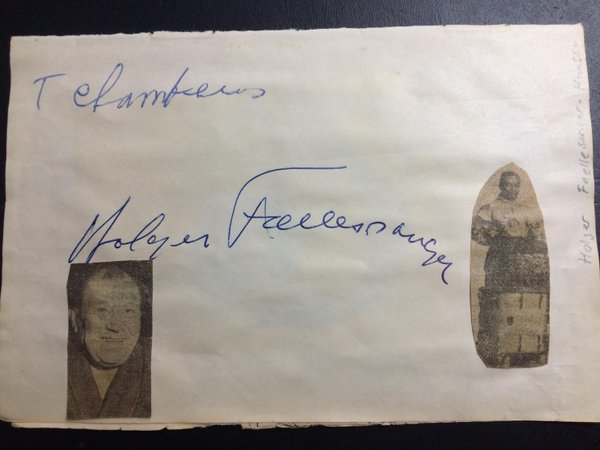 T Chambers
Holger Fællessanger
Holger Faellesanger